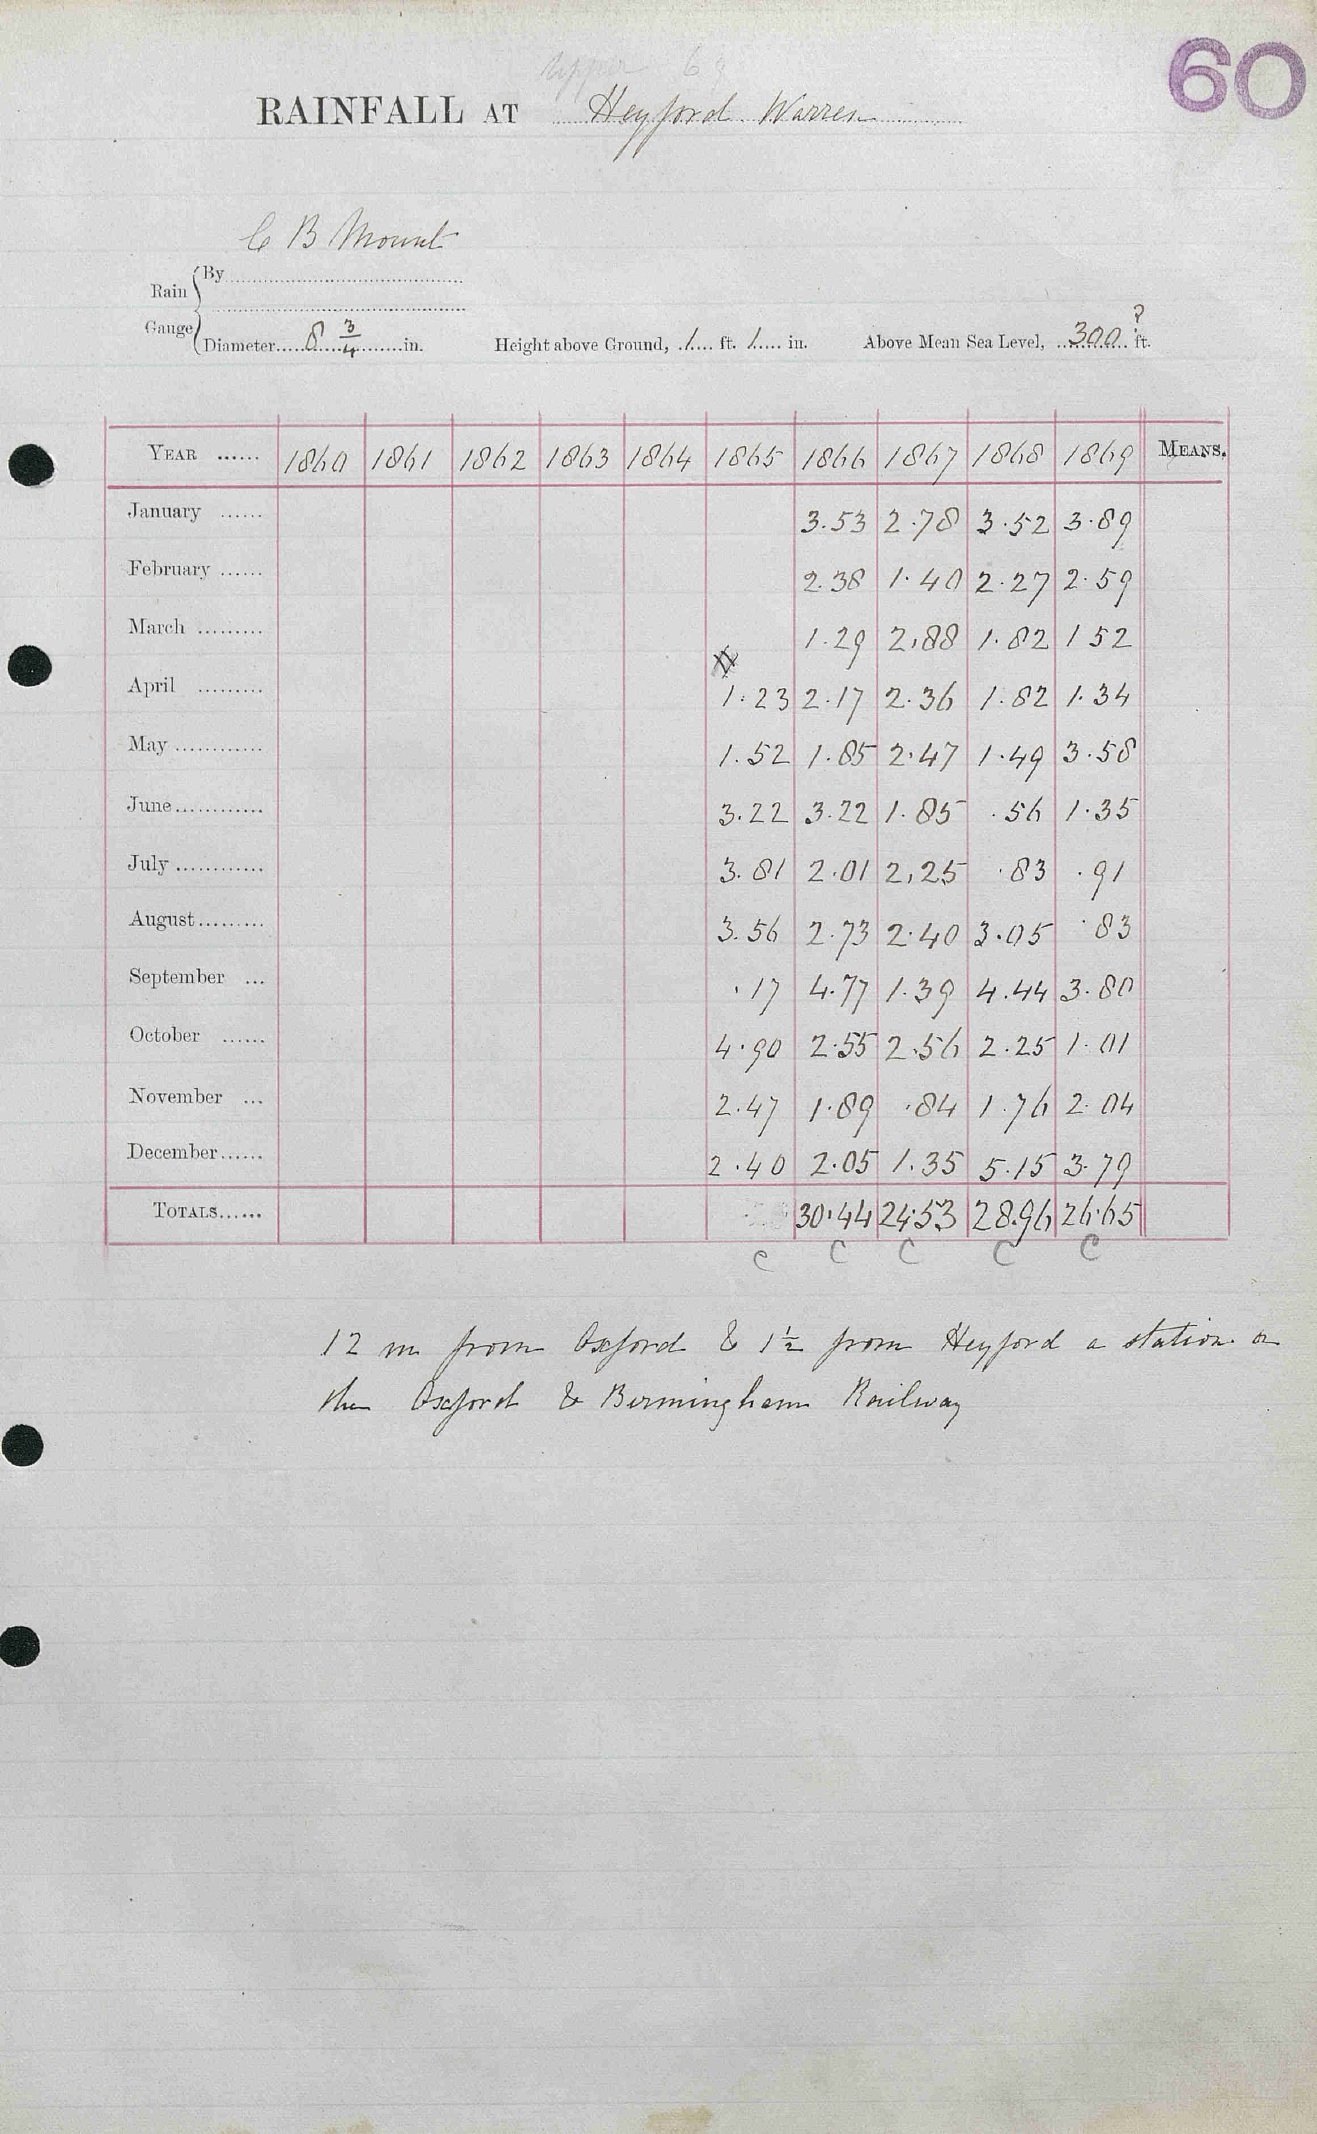 60
Upper
RAINFALL AT Heyford Warren
C B Mount
Rain Gauge { By
Diameter 8 3/4 in. Height above Ground, 1 ft. 1 in. Above Mean Sea Level, 300 ? ft.
YEAR ...... 1860 1861 1862 1863 1864 1865 1866 1867 1868 1869 MEANS.
January ...... 3.53 2.78 3.52 3.89
February ...... 2.38 1.40 2.27 2.59
March ......... 1.29 2.88 1.82 1 52
April ......... 1.23 2.17 2.36 1.82 1.34
May ............ 1.52 1.85 2.47 1.49 3.58
June ............ 3.22 3.22 1.85 .56 1.35
July ............ 3.81 2.01 2.25 .83 .91
August ......... 3.56 2.73 2.40 3.05 .83
September ... .17 4.77 1.39 4.44 3.80
October ...... 4.90 2.55 2.56 2.25 1.01
November ... 2.47 1.89 .84 1.76 2.04
December ...... 2.40 2.05 1.35 5.15 3.79
TOTALS ...... 30.44 24.53 28.96 26.65
C C C C C
12 m from Oxford & 1½ from Heyford a station on
the Oxford & Birmingham Railway